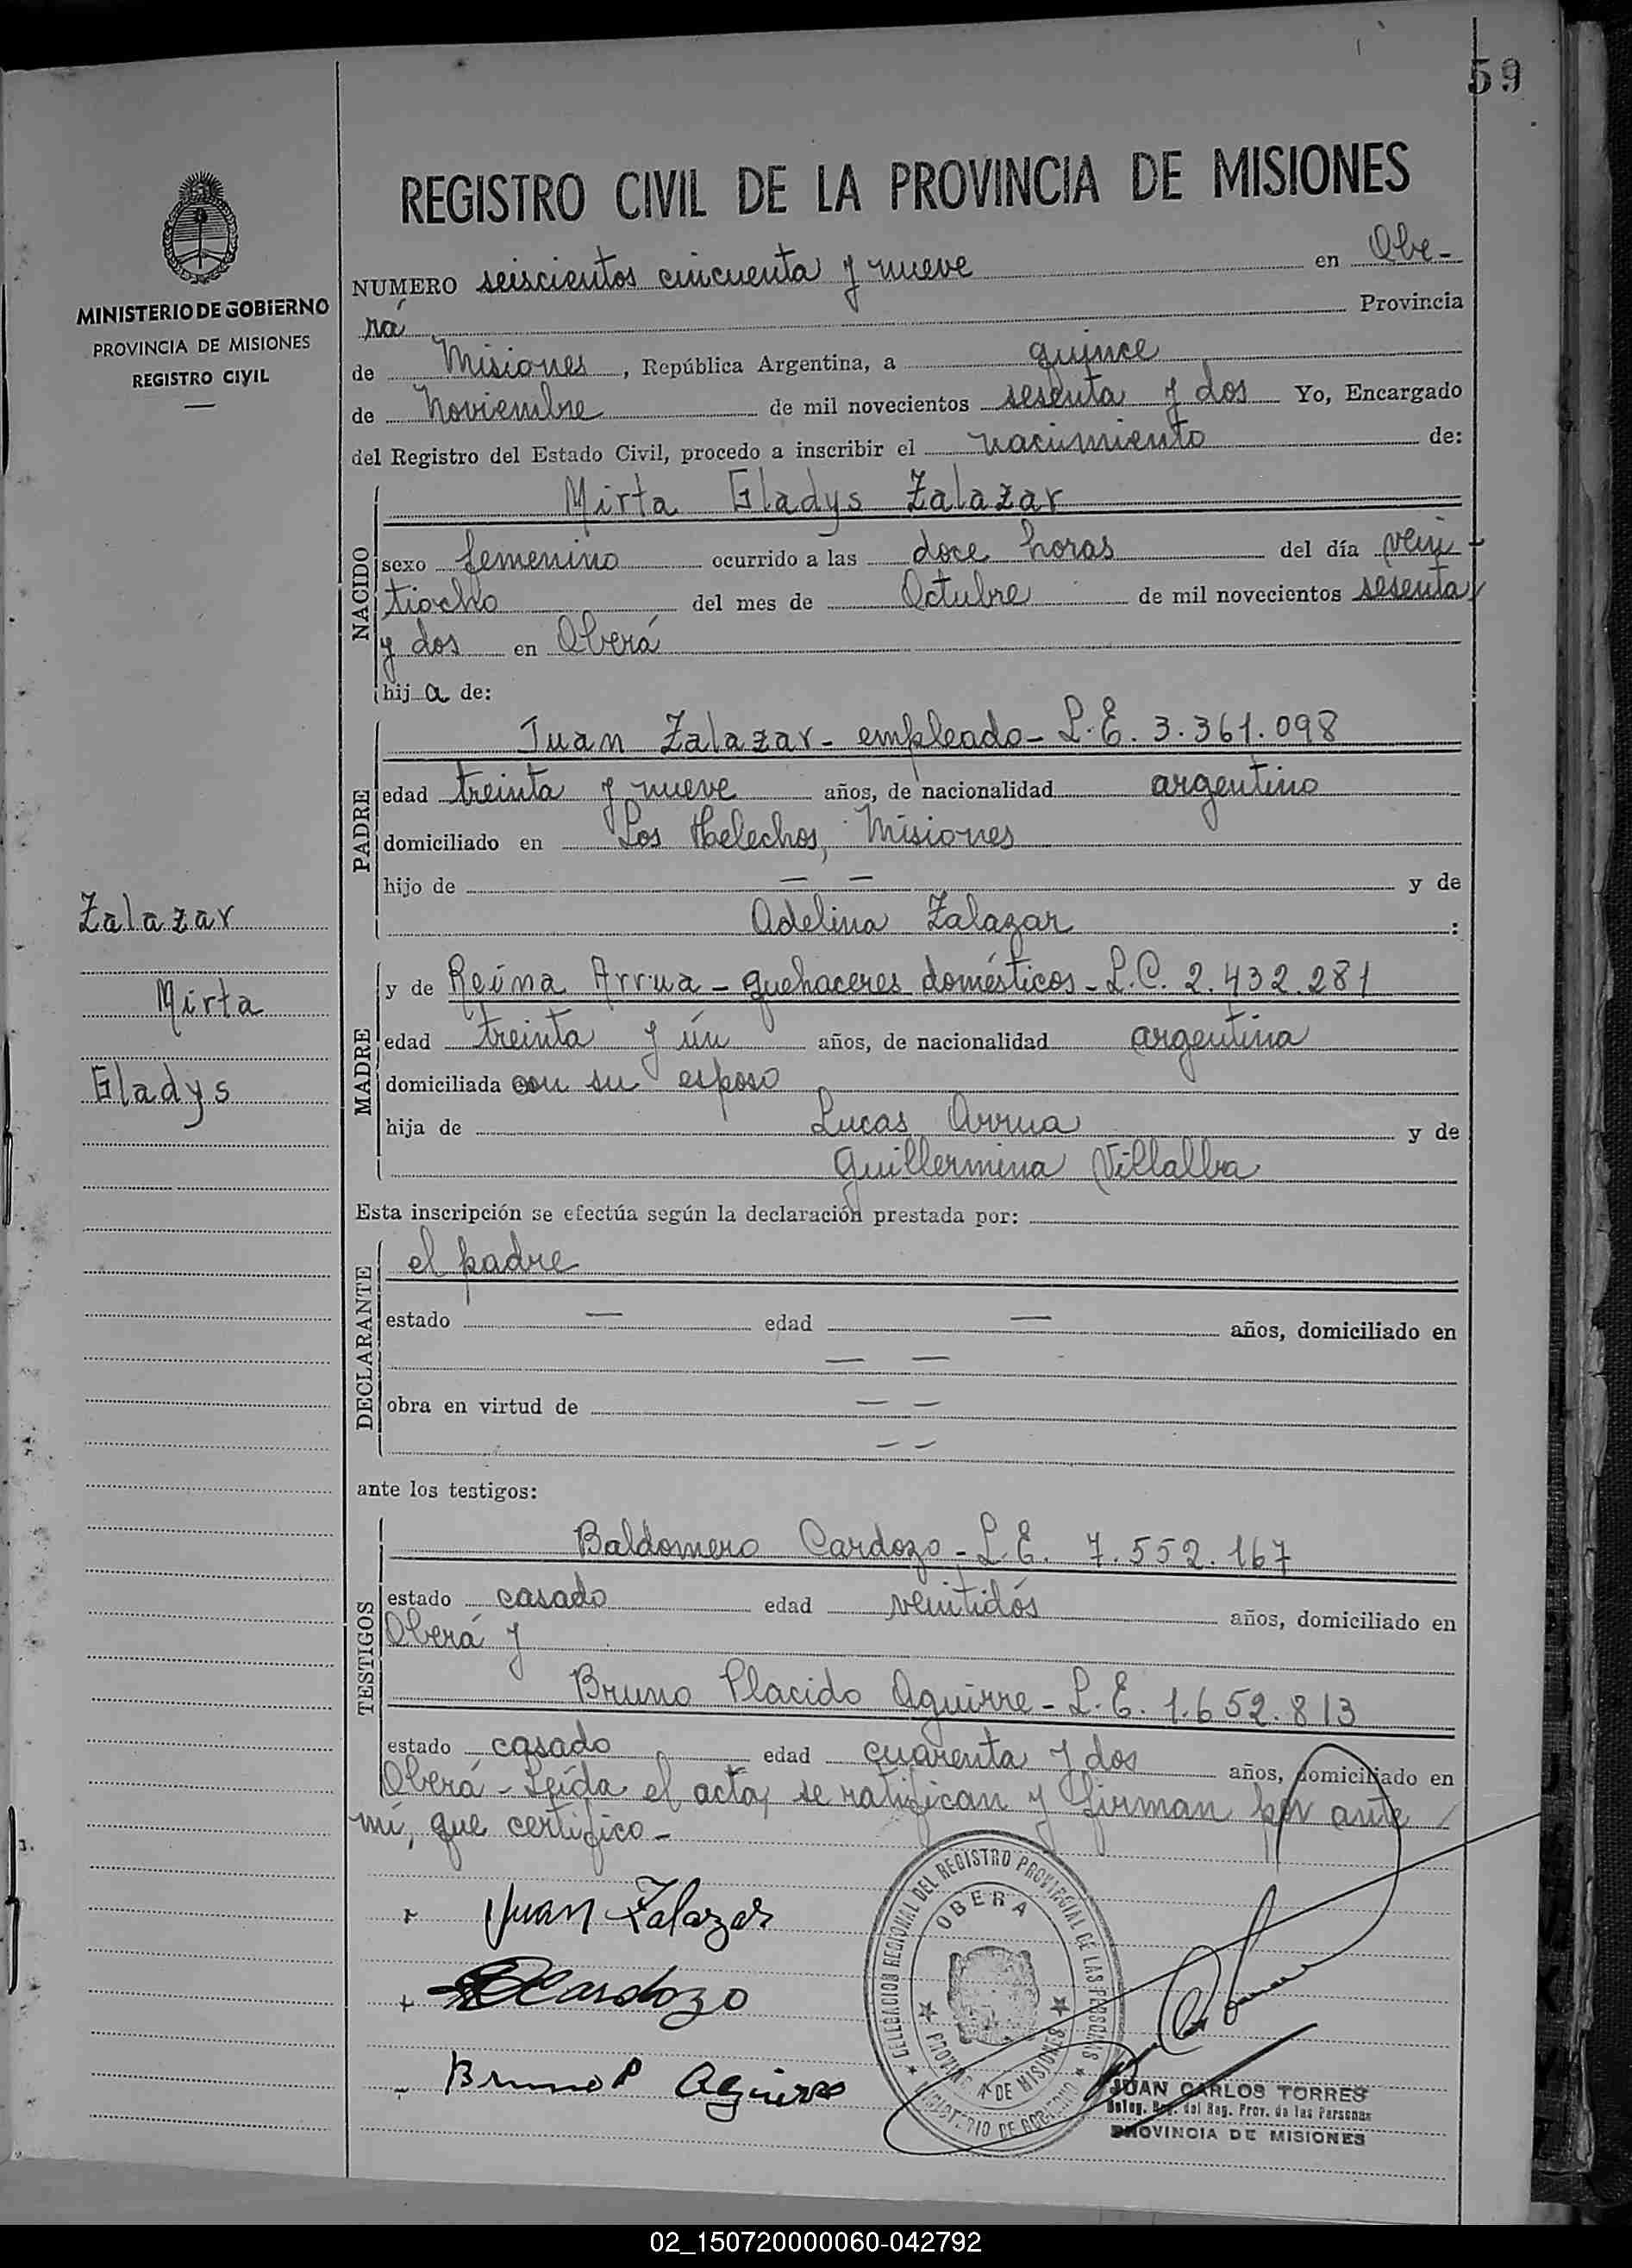 59
REGISTRO CIVIL DE LA PROVINCIA DE MISIONES
MINISTERIO DE GOBIERNO
PROVINCIA DE MISIONES
REGISTRO CIVIL
NUMERO seiscientos cincuenta y nueve en Obe-
rá Provincia
de Misiones, República Argentina, a quince
de Noviembre de mil novecientos sesenta y dos Yo, Encargado
del Registro del Estado Civil, procedo a inscribir el nacimiento de:
Mirta Gladys Zalazar
NACIDO
sexo femenino ocurrido a las doce horas del día vein
tiocho del mes de Octubre de mil novecientos sesenta
y dos en Oberá
hija de:
PADRE
Juan Zalazar - empleado - L.E. 3.361.098
edad treinta y nueve años, de nacionalidad argentino
domiciliado en Los Helechos, Misiones
hijo de — — y de
Adelina Zalazar :
Zalazar
Mirta
Gladys
MADRE
y de Reina Arrua - quehaceres domésticos - L.C. 2.432.281
edad treinta y ún años, de nacionalidad argentina
domiciliada con su esposo
hija de Lucas Arrua y de
Guillermina Villalba
Esta inscripción se efectúa según la declaración prestada por:
DECLARANTE
el padre
estado — edad — años, domiciliado en
— —
obra en virtud de — —
— —
ante los testigos:
TESTIGOS
Baldomero Cardozo - L.E. 7.552.167
estado casado edad veintidós años, domiciliado en
Oberá y
Bruno Placido Aguirre - L.E. 1.652.813
estado casado edad cuarenta y dos años, domiciliado en
Oberá - Leída el acta, se ratifican y firman por ante
mí, que certifico -
Juan Zalazar
Cardozo
Bruno P Aguirre
DELEGACION REGIONAL DEL REGISTRO PROVINCIAL DE LAS PERSONAS
OBERA
PROVINCIA DE MISIONES
MINISTERIO DE GOBIERNO
JUAN CARLOS TORRES
Deleg. Reg. del Reg. Prov. de las Personas
PROVINCIA DE MISIONES
02_150720000060-042792